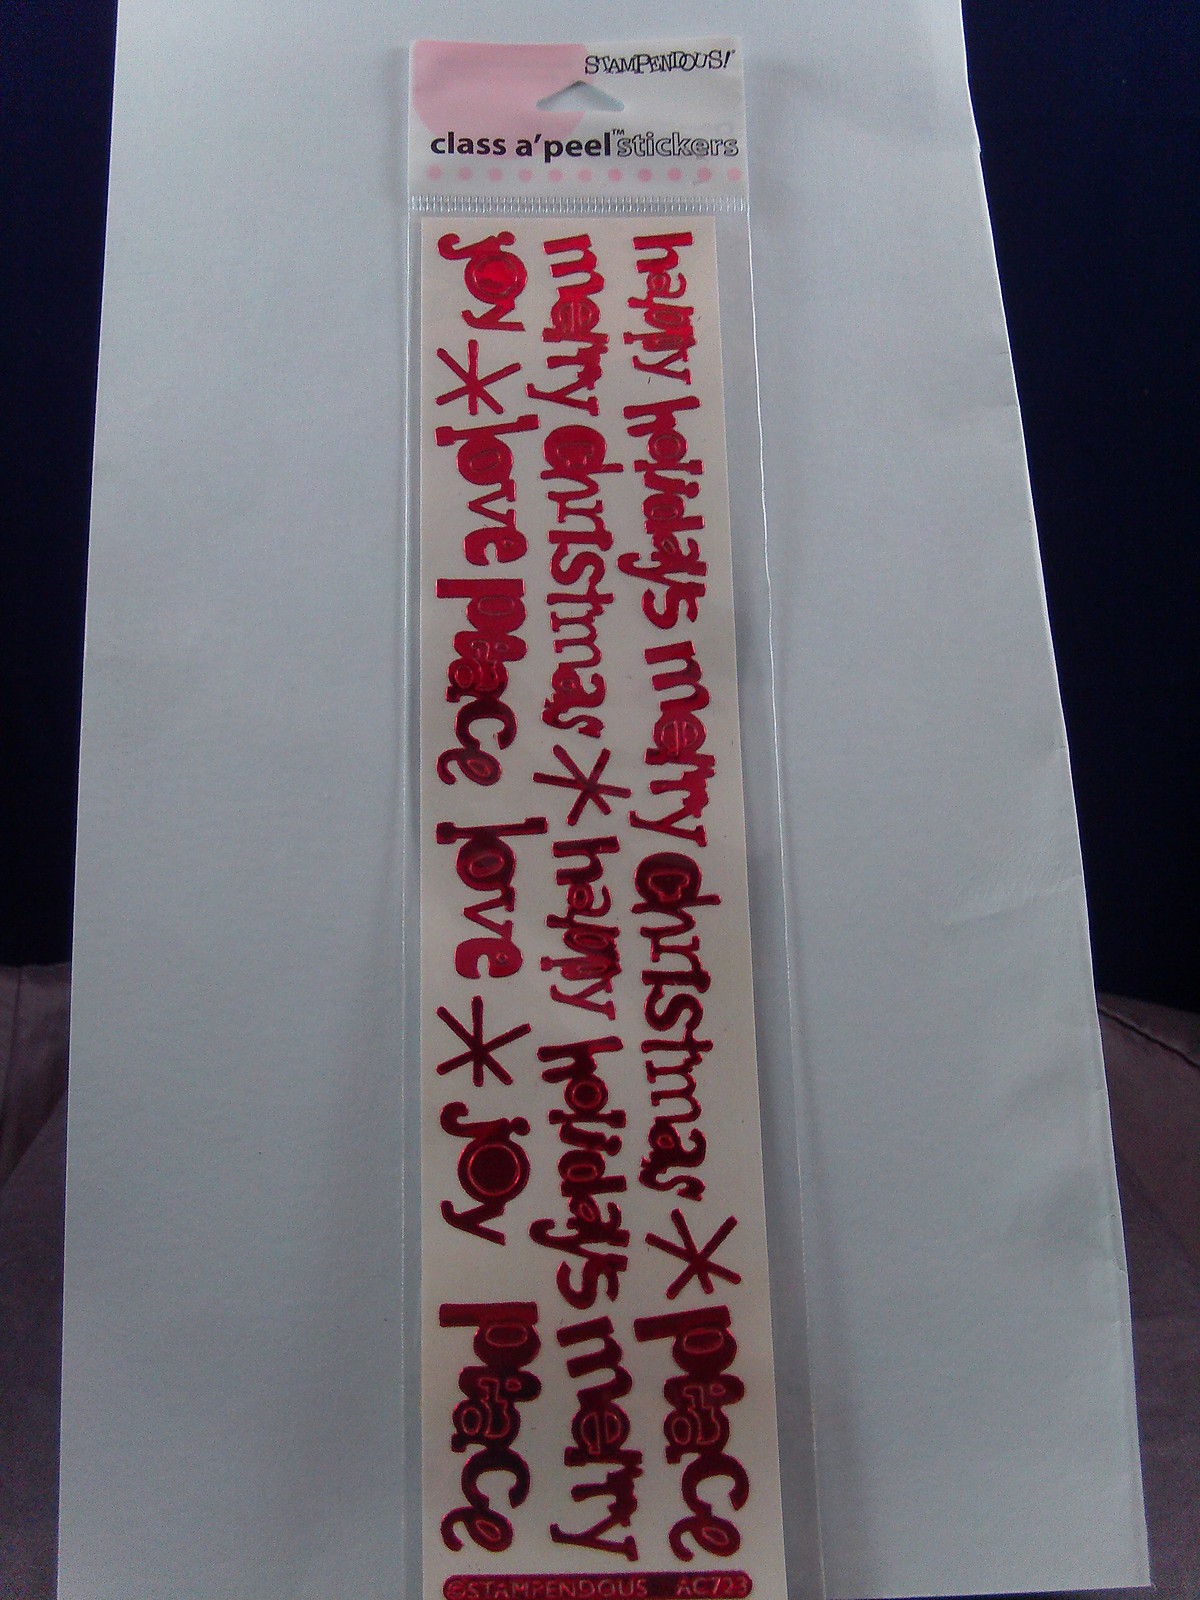 STAMPENDOUS!
class a'peel™ stickers
happy holidays merry christmas * peace
merry christmas * happy holidays merry
joy * love peace love * joy peace
©STAMPENDOUS AC723